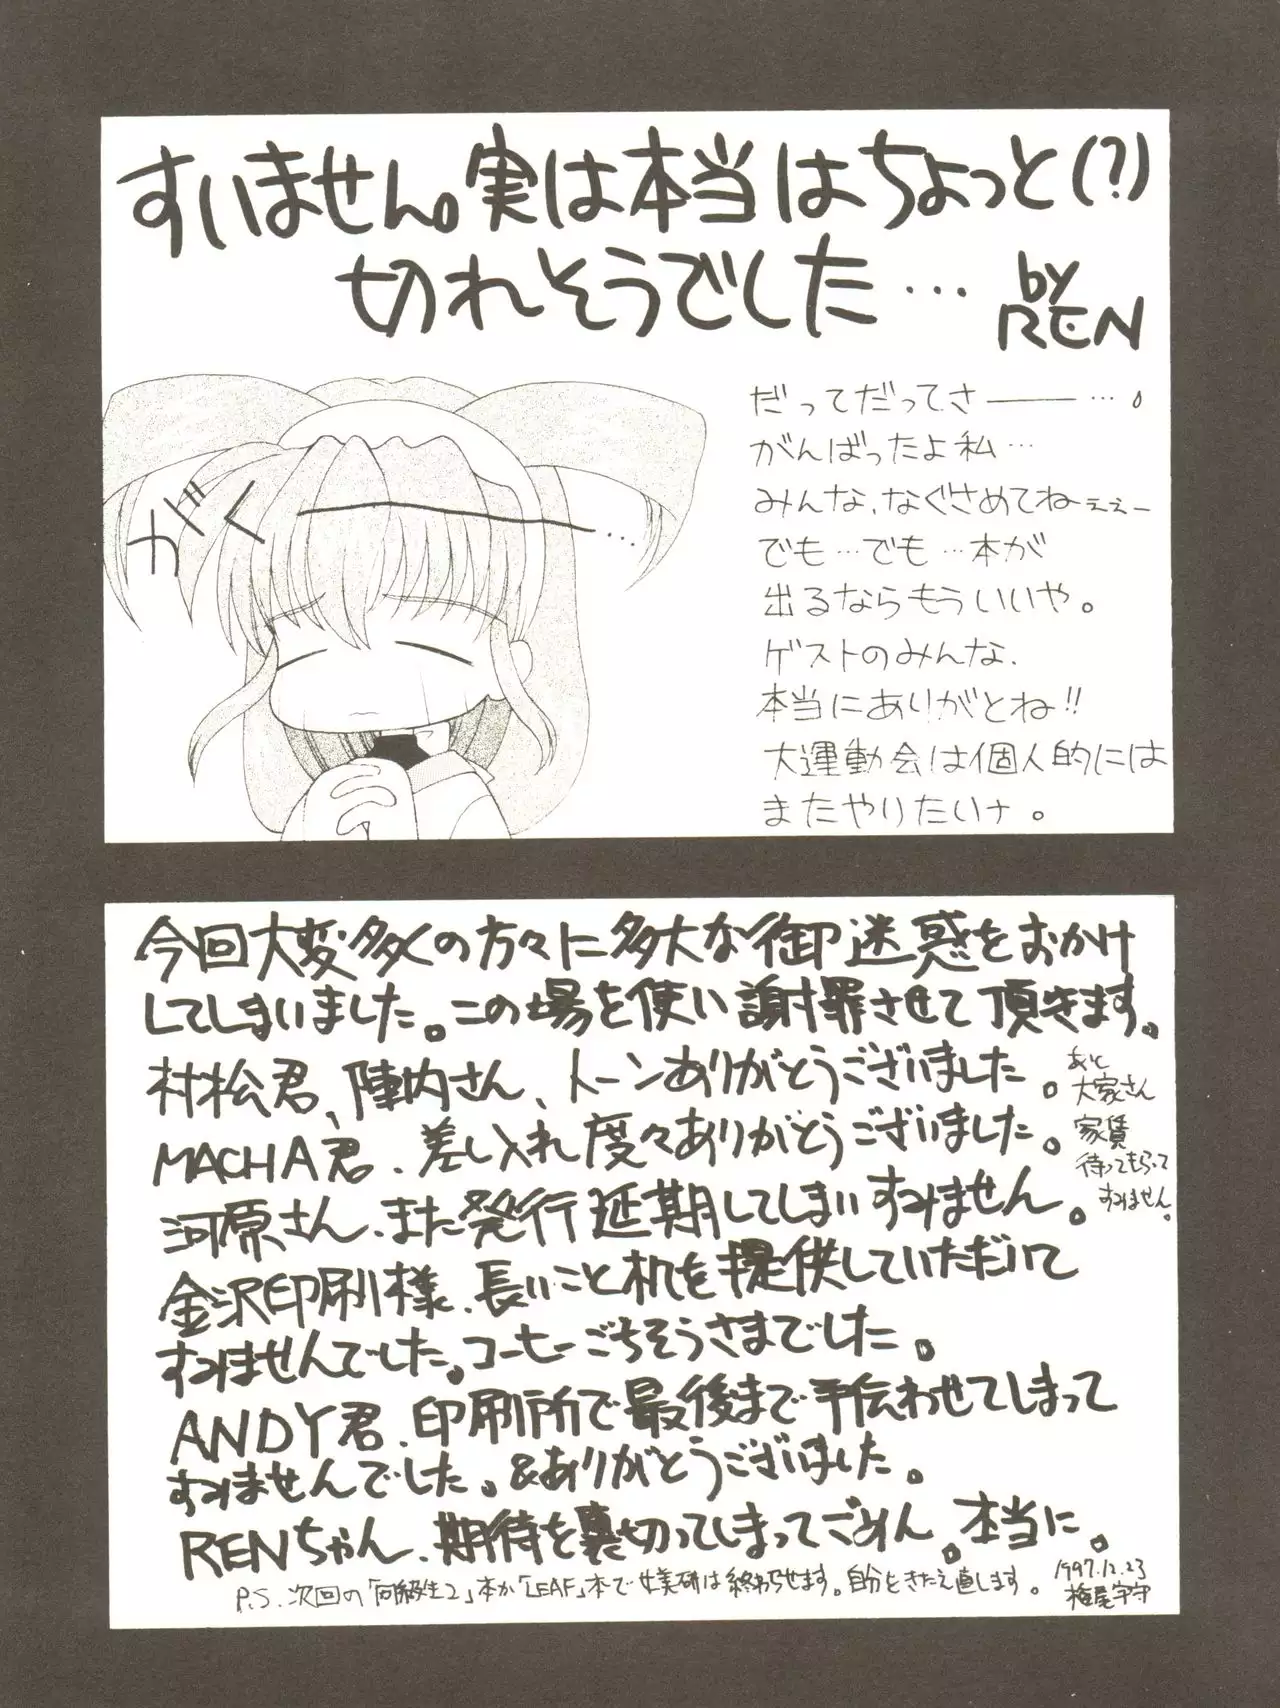 すいません。実は本当はちょっと(?)
切れそうでした… by
REN
がくーーー…
だってだってさ———…。
がんばったよ私…
みんな、なぐさめてねぇぇー
でも…でも…本が
出るならもういいや。
ゲストのみんな、
本当にありがとね!!
大運動会は個人的には
またやりたいナ。
今回大変多くの方々に多大な御迷惑をおかけ
してしまいました。この場を使い謝罪させて頂きます。
村松君、陣内さん、トーンありがとうございました。
MACHA君、差し入れ度々ありがとうございました。
あと
大家さん
家賃
待ってもらって
すみません。
河原さん、また発行延期してしまいすみません。
金沢印刷様、長いこと机を提供していただいて
すみませんでした。コーヒーごちそうさまでした。
ANDY君、印刷所で最後まで手伝わせてしまって
すみませんでした。&ありがとうございました。
RENちゃん、期待を裏切ってしまってごめん。本当に。
P.S. 次回の「同級生2」本か「LEAF」本で女美研は終わらせます。自分をきたえ直します。
1997.12.23
梅尾宇守